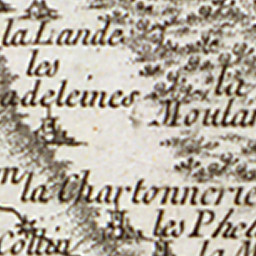 la Lande
les
adeleines
la
Moulan
la Chartonnerie
les Phel
Collin
la M